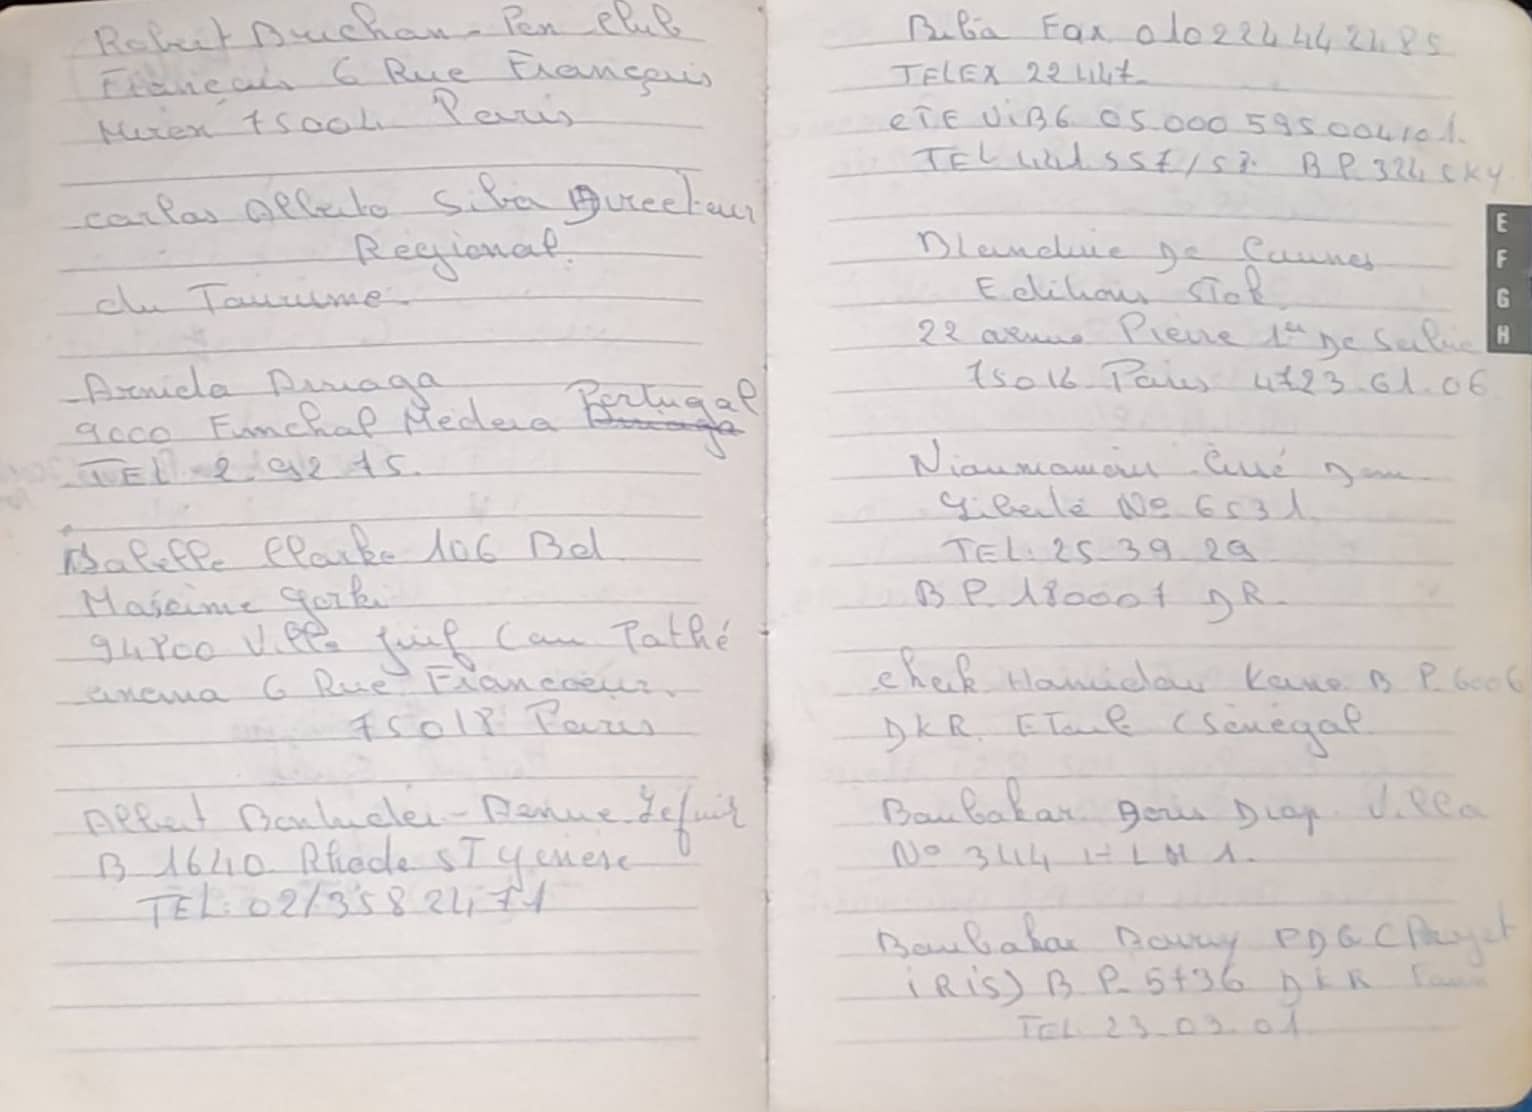 Robert Bruchan - Pen Club
Français 6 Rue François
Miren 75004 Paris
Carlos Alberto Silva Directeur
Régional
du Tourisme
Arnida Arruaga
9000 Funchal Medera Portugal
TEL 2.92 75.
Clarke 106 Bd
Maxime Gorki
94800 Ville Juif Cam Pathé
cinema 6 Rue Francoeur.
75018 Paris
Albert - Avenue
B 1640 Rhode ST Genese
TEL: 02/358 24 71
Fax 010 224 44 24 85
TELEX 22447
05.000 595 00410 1.
TEL 441 557/58. B P. 324 CKY
Blandine De Caunes
Editions Stok
22 avenue Pierre 1er De Serbie
75016 Paris 4723.61.06
Liberté No 6531
TEL: 25 39 29
B P. 180007 DR.
Cheik Hamidou Kane B P. 6006
DKR. Etoile (Sénégal
Boubakar Boris Diop Villa
No 344 HLM 1.
Boubakar PDG (Proyet
iRis) B P. 5736 DKR
TEL 23.03.01